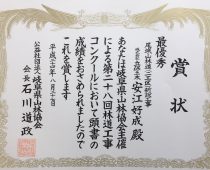 賞状
最優秀
安江好成殿
あなたは岐阜県山林協会主催
による第二十八回林道工事
コンクールにおいて頭書の
成績をおさめられましたので
これを賞します
平成二十四年八月二十日
公益社団法人岐阜県山林協会
会長石川道政